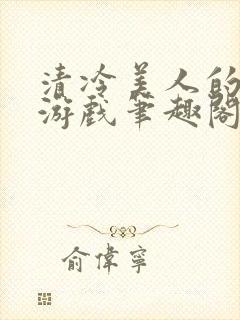 清冷美人的
游戏笔趣阁
俞伟宁